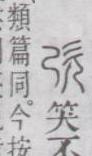 弞笑不
類篇同。今按